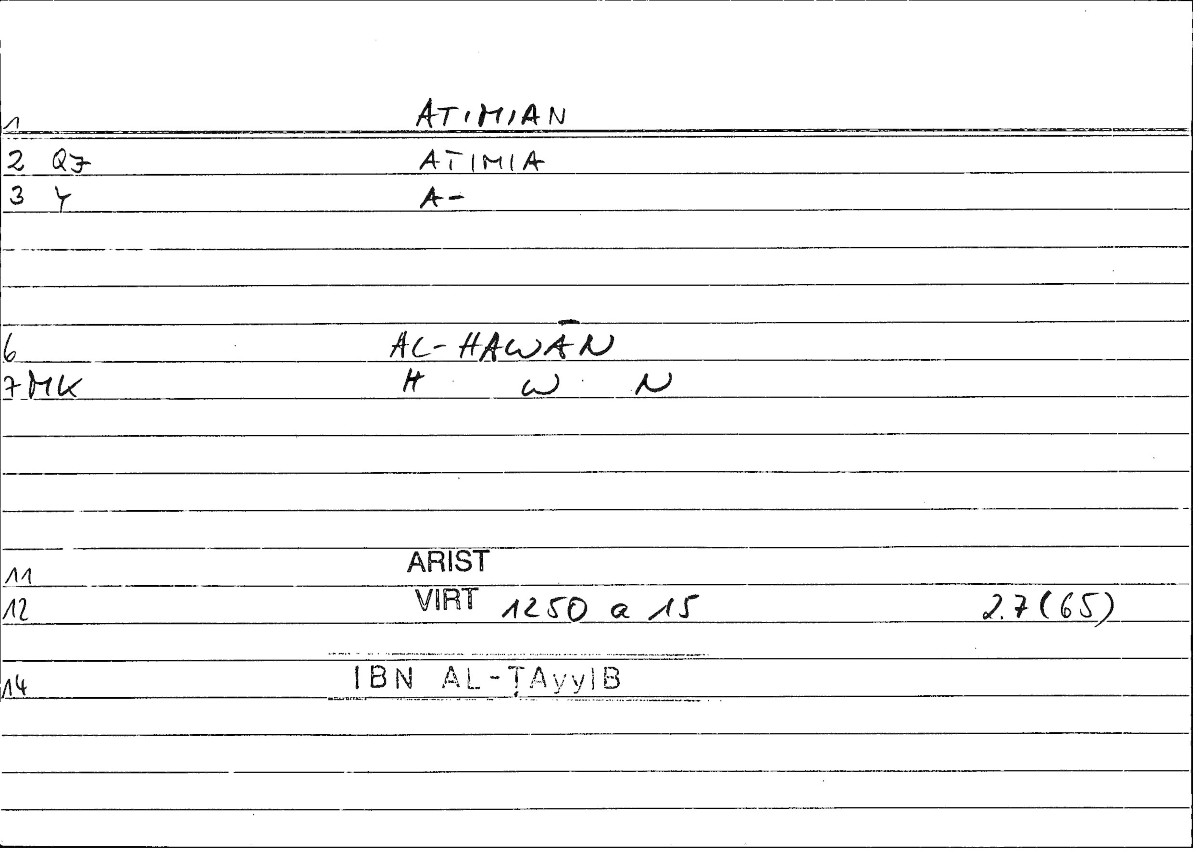 1 ATIMIAN
2 Q7 ATIMIA
3 Y A-
6 AL-HAWĀN
7 MK H W N
11 ARIST
12 VIRT 1250 a 15 2.7(65)
14 IBN AL-ṬAyyIB